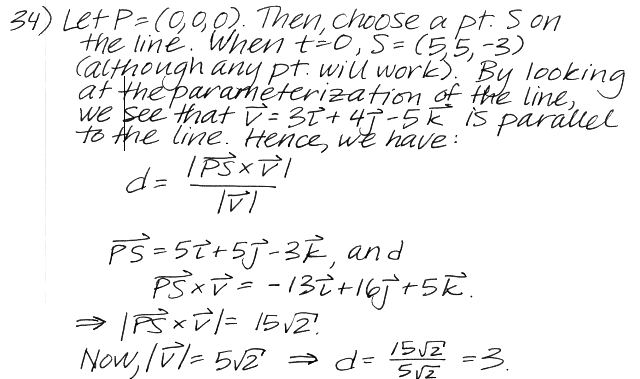 34) Let P = (0,0,0). Then, choose a pt. S on
the line. When t=0, S = (5,5,-3)
(although any pt. will work). By looking
at the parameterization of the line,
we see that v⃗ = 3i⃗ + 4j⃗ - 5k⃗ is parallel
to the line. Hence, we have:
d = |PS⃗ × v⃗| / |v⃗|
PS⃗ = 5i⃗ + 5j⃗ - 3k⃗, and
PS⃗ × v⃗ = -13i⃗ + 16j⃗ + 5k⃗.
⇒ |PS⃗ × v⃗| = 15√2.
Now, |v⃗| = 5√2 ⇒ d = 15√2 / 5√2 = 3.